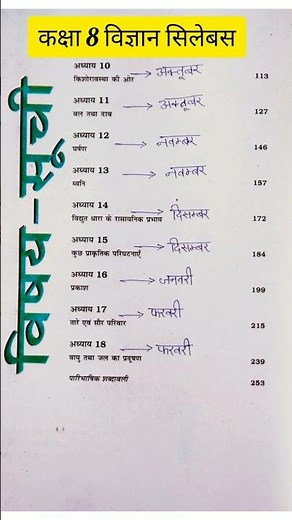 कक्षा 8 विज्ञान सिलेबस
विषय-सूची
अध्याय 10
किशोरावस्था की ओर → अक्तूबर 113
अध्याय 11
बल तथा दाब → अक्तूबर 127
अध्याय 12
घर्षण → नवम्बर 146
अध्याय 13
ध्वनि → नवम्बर 157
अध्याय 14
विद्युत धारा के रासायनिक प्रभाव → दिसम्बर 172
अध्याय 15
कुछ प्राकृतिक परिघटनाएँ → दिसम्बर 184
अध्याय 16
प्रकाश → जनवरी 199
अध्याय 17
तारे एवं सौर परिवार → फरवरी 215
अध्याय 18
वायु तथा जल का प्रदूषण → फरवरी 239
पारिभाषिक शब्दावली 253